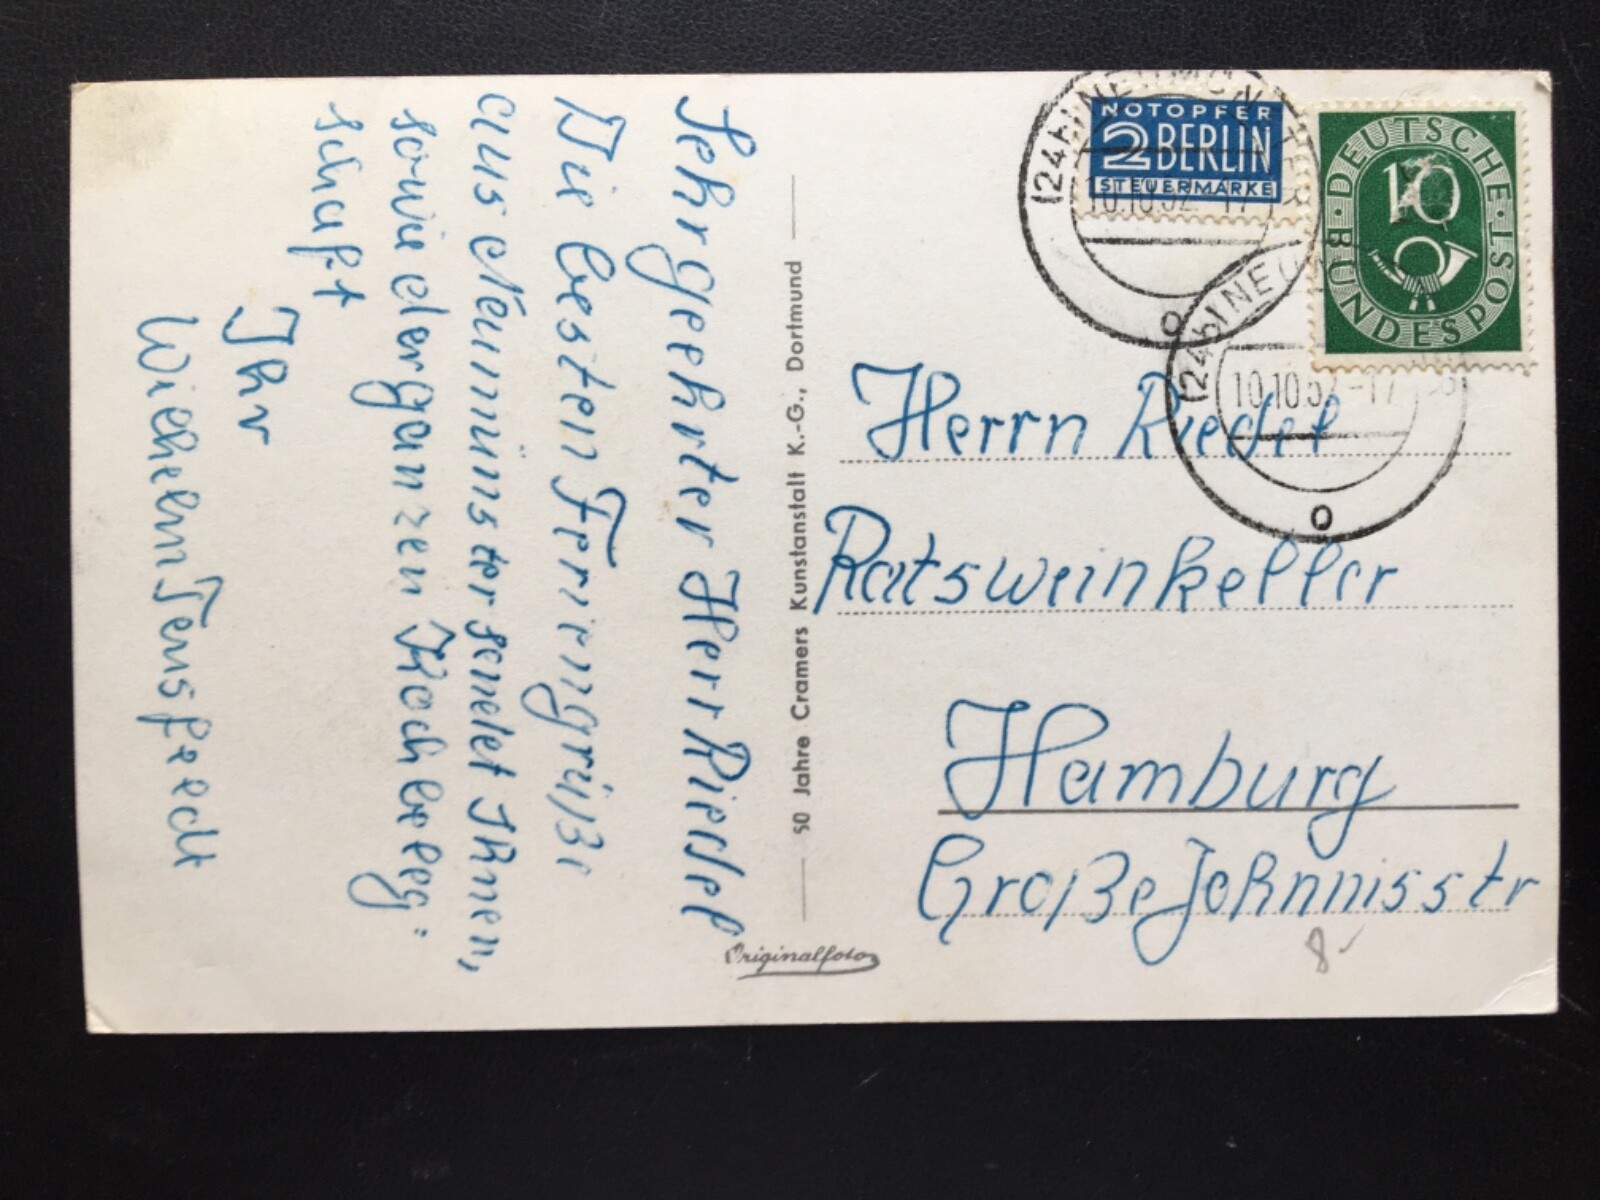 Sehrgeehrter Herr Riedel
Die besten Feriengrüße
aus Neumünster sendet Ihnen,
sowie der ganzen Kochbeleg-
schaft
Ihr
Wilhelm Tensfeldt
50 Jahre Cramers Kunstanstalt K.-G., Dortmund
Originalfoto
NOTOPFER
2 BERLIN
STEUERMARKE
DEUTSCHE BUNDESPOST
10
(24b) NEUMÜNSTER
10.10.52.-17
(24b) NEU
10.10.52.-17
Herrn Riedel
Ratsweinkeller
Hamburg
Große Johnnisstr
8-